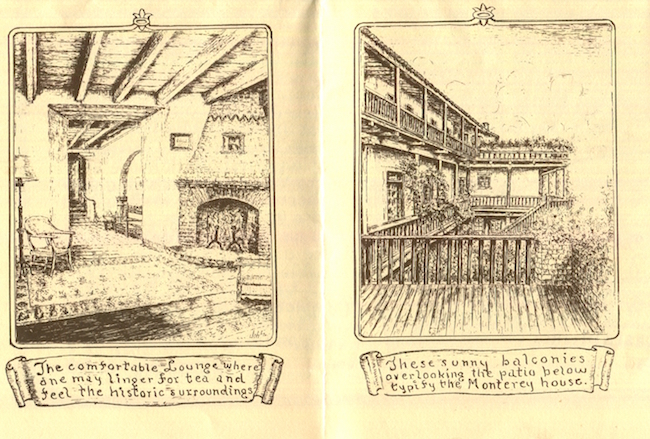 The comfortable Lounge where
one may linger for tea and
feel the historic surroundings
These sunny balconies
overlooking the patio below
typify the Monterey house.